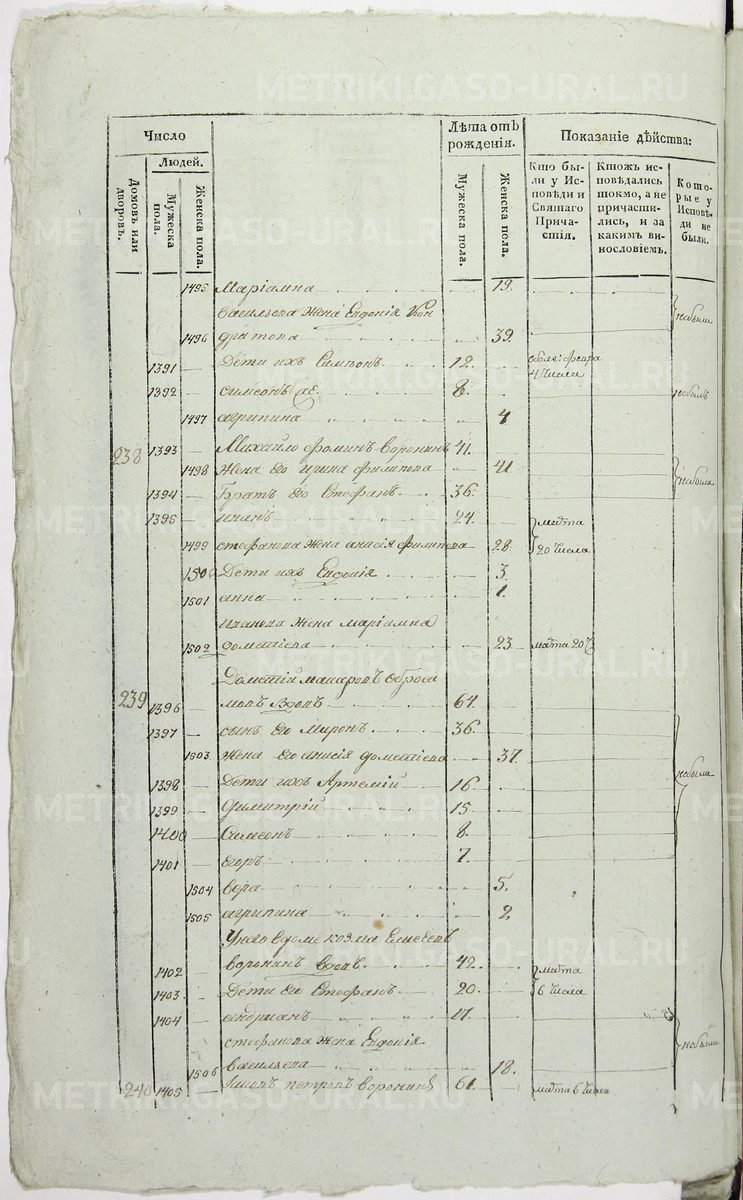 METRIKI.GASO-URAL.RU
Число
Людей.
Домовъ или дворовъ.
Мужеска пола.
Женска пола.
Лѣта отъ рожденія.
Мужеска пола.
Женска пола.
Показаніе дѣйства:
Кто были у Исповѣди и Святаго Причастія.
Ктожъ исповѣдались токмо, а не причастились, и за какимъ винословіемъ.
Которые у Исповѣди не были.
1495 Маріамна 19.
Васильева жена Евдокія Кон
1496 дратова 39. небыли
1391 Дети ихъ Симеонъ 12. февра 4 числа
1392 симеонъ 8. небылъ
1497 агрипина 4
238 1393 Михайло фоминъ Воронинъ 41.
1498 жена его ирина филипова 41 небыли
1394 Братъ его Стефанъ 36.
1395 иванъ 24. марта
1499 стефанова жена анисія филипова 28. 20 числа
1500 Дети ихъ Евдокія 3.
1501 анна 1.
иванова жена маріамна
1502 дометіева 23 марта 20
239 Дометій макаровъ Оброса
1396 мовъ вдовъ 64.
1397 сынъ его Миронъ 36.
1503 жена его анисія дометіева 37.
1398 Дети ихъ Артемій 16. небыли
1399 Димитрій 15.
1400 Симеонъ 8.
1401 егоръ 7.
1504 вера 5.
1505 агрипина 2
У него в доме козма Елисеевъ
1402 воронинъ вдовъ 42. марта
1403 Дети его Стефанъ 20. 6 числа
1404 андрианъ 17.
стефанова жена Евдокія небыли
1506 васильева 18.
240 1405 петровъ воронинъ 61. марта 6 числа